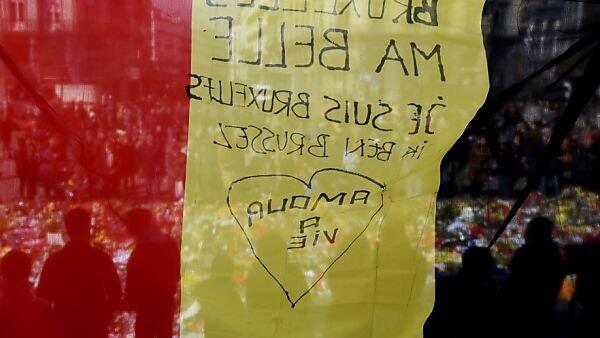 BRUXELLES
MA BELLE
JE SUIS BRUXELLES
iK BEN BRUSSEL
AMOUR
A
ViE